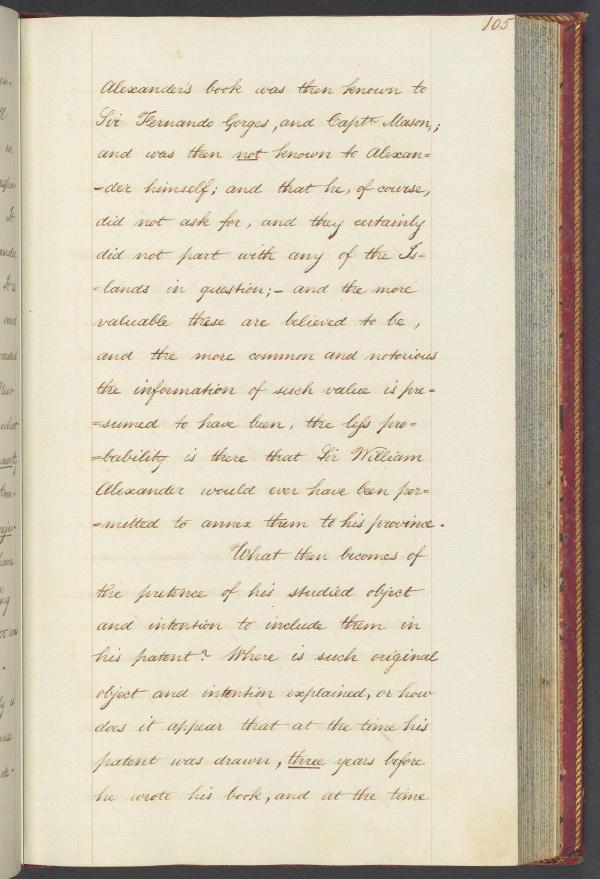 105
Alexander's book was then known to
Sir Fernando Gorges, and Captn Mason,;
and was then not known to Alexan=
=der himself; and that he, of course,
did not ask for, and they certainly
did not part with any of the Is=
=lands in question;- and the more
valuable these are believed to be,
and the more common and notorious
the information of such value is pre=
=sumed to have been, the less pro=
=bability is there that Sir William
Alexander would ever have been per=
=mitted to annex them to his province.
What then becomes of
the pretence of his studied object
and intention to include them in
his patent? Where is such original
object and intention explained, or how
does it appear that at the time his
patent was drawn, three years before
he wrote his book, and at the time